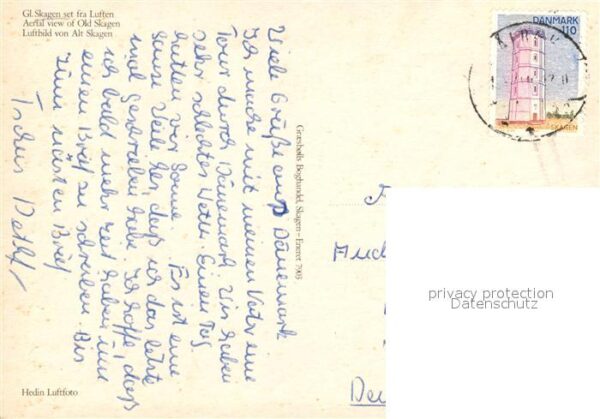 Gl. Skagen set fra Luften
Aerial view of Old Skagen
Luftbild von Alt Skagen
DANMARK
110
SKAGEN
Viele Grüße aus Dänemark
Ich mache mit meinen Vater eine
Tour durch Dänemark. Wir haben
sehr schlechtes Wetter. Einen Tag
hatten wir Sonne. Es ist eine
ganze Weile her, daß ich das letzte
mal geschrieben habe. Ich hoffe, daß
ich bald mehr Zeit habe, um
einen Brief zu schreiben. Bis
zum nächsten Brief
Tschüs Detlef
Græsholts Boghandel, Skagen – Eneret 7903
privacy protection
Datenschutz
Hedin Luftfoto